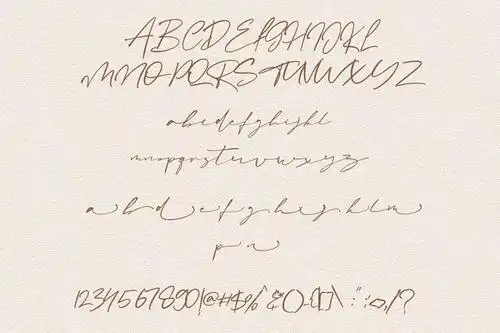 ABCDEFGHIJKL
MNOPQRSTUVWXYZ
abcdefghijkl
mnopqrstuvwxyz
a b d e f g h e j h l m
p r n
1234567890|@#$%^&()_-{}[]\:";:<>,/?